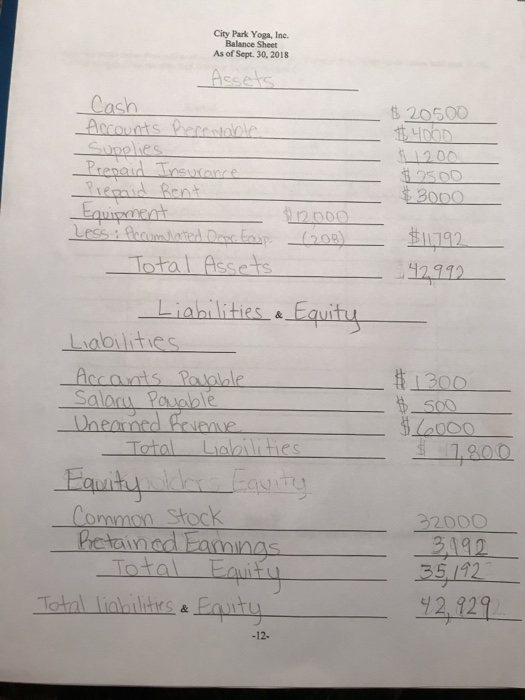 City Park Yoga, Inc.
Balance Sheet
As of Sept. 30, 2018
Assets
Cash $ 20500
Accounts Receivable $ 4000
Supplies $ 1200
Prepaid Insurance $ 2500
Prepaid Rent $ 3000
Equipment $12000
Less: Accumulated Depr. Equip. (208) $11,792
Total Assets 42,992
Liabilities & Equity
Liabilities
Accounts Payable $ 1300
Salary Payable $ 500
Unearned Revenue $ 6000
Total Liabilities $ 7,800
Equity Equity
Common Stock 32000
Retained Earnings 3,192
Total Equity 35,192
Total liabilities & Equity 42,929
-12-